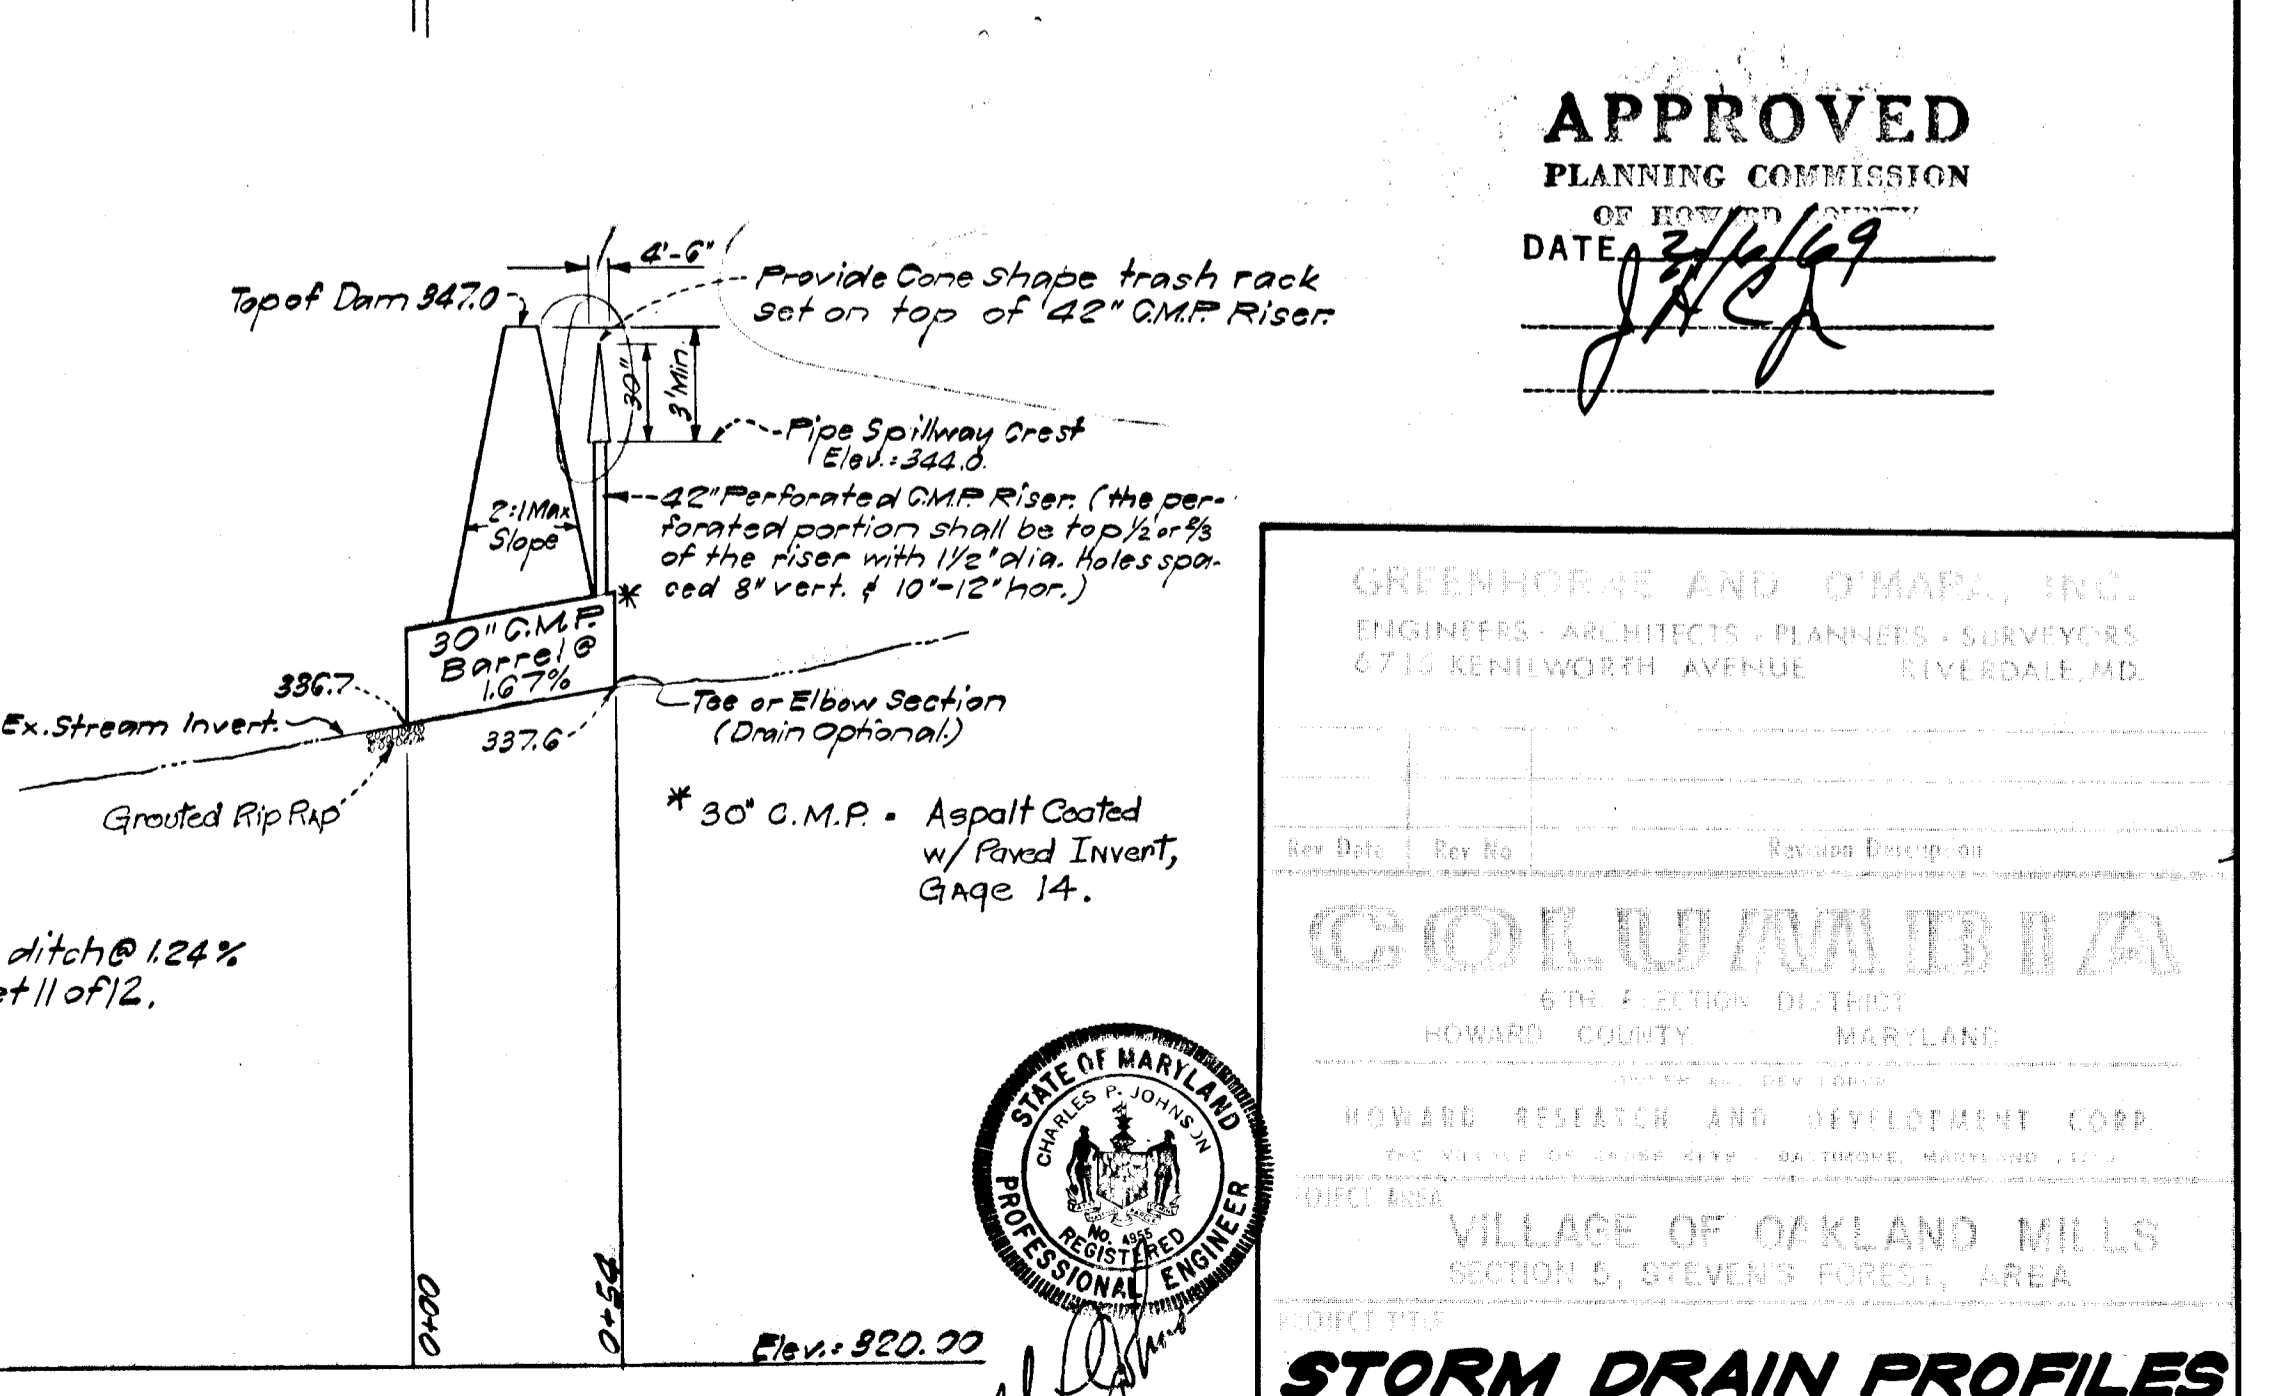 APPROVED
PLANNING COMMISSION
OF HOWARD COUNTY
DATE 3/6/69
4'-6"
Provide Cone shape trash rack
set on top of 42" C.M.P. Riser.
Top of Dam 347.0
30"
3' Min.
Pipe Spillway Crest
Elev.: 344.0.
42" Perforated C.M.P. Riser. (the per-
forated portion shall be top 1/2 or 2/3
of the riser with 1 1/2" dia. Holes spa-
ced 8" vert. & 10"-12" hor.)
2:1 Max
Slope
*
30" C.M.P.
Barrel @
1.67%
336.7
Ex. Stream Invert.
337.6
Tee or Elbow Section
(Drain Optional.)
Grouted Rip Rap
* 30" C.M.P. - Aspalt Coated
w/ Paved Invert,
Gage 14.
ditch @ 1.24%
et 11 of 12.
0+00
0+54
Elev.: 320.00
STATE OF MARYLAND
CHARLES P. JOHNSON
NO. 4955
REGISTERED
PROFESSIONAL ENGINEER
GREENHORNE AND O'MARA, INC.
ENGINEERS · ARCHITECTS · PLANNERS · SURVEYORS
6715 KENILWORTH AVENUE RIVERDALE, MD.
Rev Date Rev No Revision Description
COLUMBIA
6TH. ELECTION DISTRICT
HOWARD COUNTY MARYLAND
OWNER AND DEVELOPER
HOWARD RESEARCH AND DEVELOPMENT CORP.
THE VILLAGE OF CROSS KEYS - BALTIMORE, MARYLAND
PROJECT AREA
VILLAGE OF OAKLAND MILLS
SECTION 5, STEVEN'S FOREST, AREA
PROJECT TITLE
STORM DRAIN PROFILES